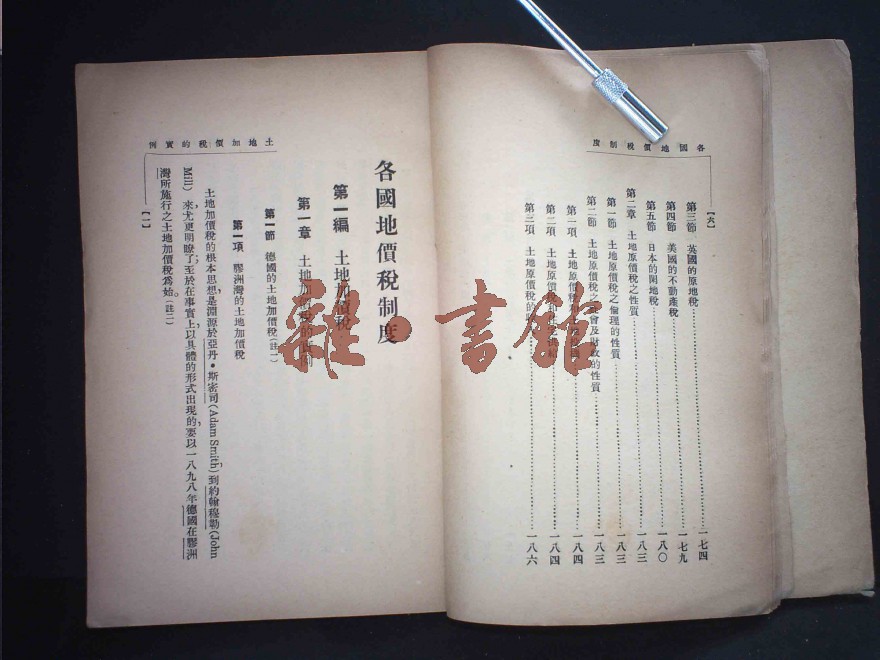 各國地價稅制度
【六】
第三節 英國的原地稅 一七四
第四節 美國的不動產稅 一七九
第五節 日本的閑地稅 一八〇
第二章 土地原價稅之性質 一八三
第一節 土地原價稅之倫理的性質 一八三
第二節 土地原價稅之會及財政的性質 一八三
第一項 土地原價稅 一八四
第二項 土地原價稅和 一八四
第三項 土地原價稅的 一八六
土地加價稅的實例
各國地價稅制度
第一編 土地加價稅
第一章 土地加價稅的實例
第一節 德國的土地加價稅(註一)
第一項 膠洲灣的土地加價稅
土地加價稅的根本思想,是淵源於亞丹•斯密司(Adam Smith),到約翰穆勒(John
Mill) 來尤更明瞭了;至於在事實上,以具體的形式出現的,要以一八九八年德國在膠洲
灣所施行之土地加價稅爲始。(註二)
【一】
羅•書館